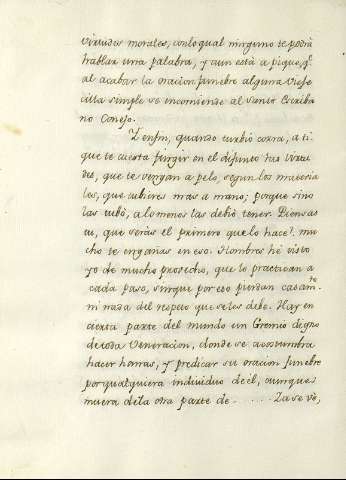 virtudes morales, con lo qual ninguno te podrá
hablar una palabra, y aun está a pique, q.e
al acabar la oracion funebre alguna vieje
cilla simple se encomiende al Santo Escriba
no Conejo.
Y enfin, quando turbio corra, a ti
que te cuesta fingir en el difunto las virtu
des, que te vengan a pelo, segun los materia
les, que tubieres mas a mano; porque sino
las tubó, a lo menos las debió tener. Piensas
tu, que serás el primero que lo hace? mu
cho te engañas en eso. Hombres hé visto
yo de mucho provecho, que lo practican a
cada paso, sin que por eso pierdan casam.to
ni nada del respeto que se les debe. Hay en
cierta parte del mundo un Gremio digno
de toda Veneracion, donde se acostumbra
hacer honras, y predicar su oracion funebre
por qualquiera individuo de él, aunque
muera de la otra parte de . . . . . Ya se vé,